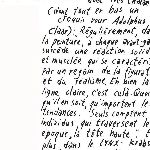 Cient tout et bas un
croquis pour Adolphus
Claar): Régulièrement, da
la peinture, à chaque avant-
succède une réaction
et musclée qui se caractéri
par un regain de la figurat
et du Réalisme. En bien la
ligne claire, c'est cela. Quoi
qu'il en soit, qu'importent le
tendances. Seuls comptent
individus, qui traversent le
époque, la tête haute,
plus dans le